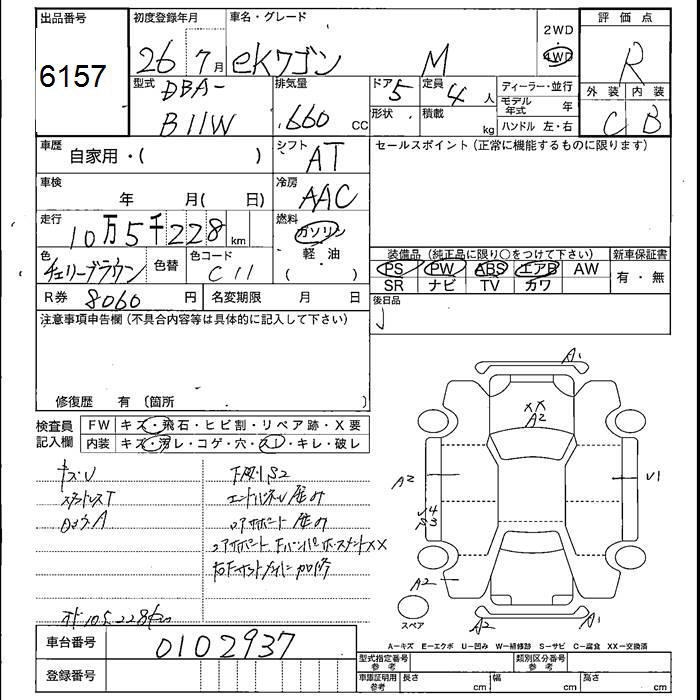 出品番号 初度登録年月 車名・グレード 2WD 評価点
6157 26 7月 eKワゴン M 4WD R
型式 排気量 ドア 定員 ディーラー・並行 外装 内装
DBA- 5 4人 モデル年式 年
B11W .660 cc 形状 積載 kg ハンドル 左・右 C B
車歴 自家用・( ) シフト AT セールスポイント(正常に機能するものに限ります)
車検 年 月( 日) 冷房 AAC
走行 10万5千228km 燃料 ガソリン
軽油
( )
色 チェリーブラウン 色替 色コード C11
装備品(純正品に限り○をつけて下さい) 新車保証書
PS PW ABS エアB AW 有・無
SR ナビ TV カワ
R券 8060円 名変期限 月 日 後日品
注意事項申告欄(不具合内容等は具体的に記入して下さい)
修復歴 有 (箇所
検査員 FW キズ・飛石・ヒビ割・リペア跡・X要
記入欄 内装 キズ・汚レ・コゲ・穴・スレ・キレ・破レ
A1
XX
A2
A2
U1
U4
A2
A2
A1
スペア
キズU
エンドパネル
XX
A-キズ E-エクボ U-凹み W-補修跡 S-サビ C-腐食 XX-交換済
車台番号 0102937
型式指定番号 参考 類別区分番号 参考
登録番号 車庫証明用 参考 長さ cm 幅 cm 高さ cm